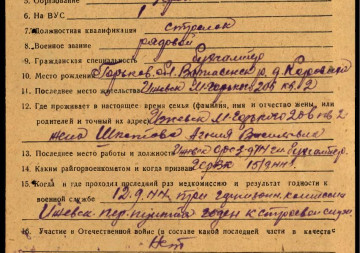 5. Образование
6. На ВУС 1
7. Должностная квалификация стрелок
8. Военное звание рядовой
9. Гражданская специальность бухгалтер
10. Место рождения Горьков. обл. р. д.
11. Последнее место жительства г. Ижевск М-Горького 206 кв. 2
12. Где проживает в настоящее время семья (фамилия, имя и отчество жены, или
родителей и точный их адрес) Ижевск М-Горького 206 кв 2
жена Шпетова Васильевна
13. Последнее место работы и должность Ижев бухгалтер.
14. Каким райгорвоенкоматом и когда призван
15. Когда и где проходил последний раз медкомиссию и результат годности к
военной службе 12.9.44 при гарнизон. комиссии
Ижевск. пер. пункта годен к строевой служ.
16. Участие в Отечественной войне (в составе какой последней части и в качестве
Нет